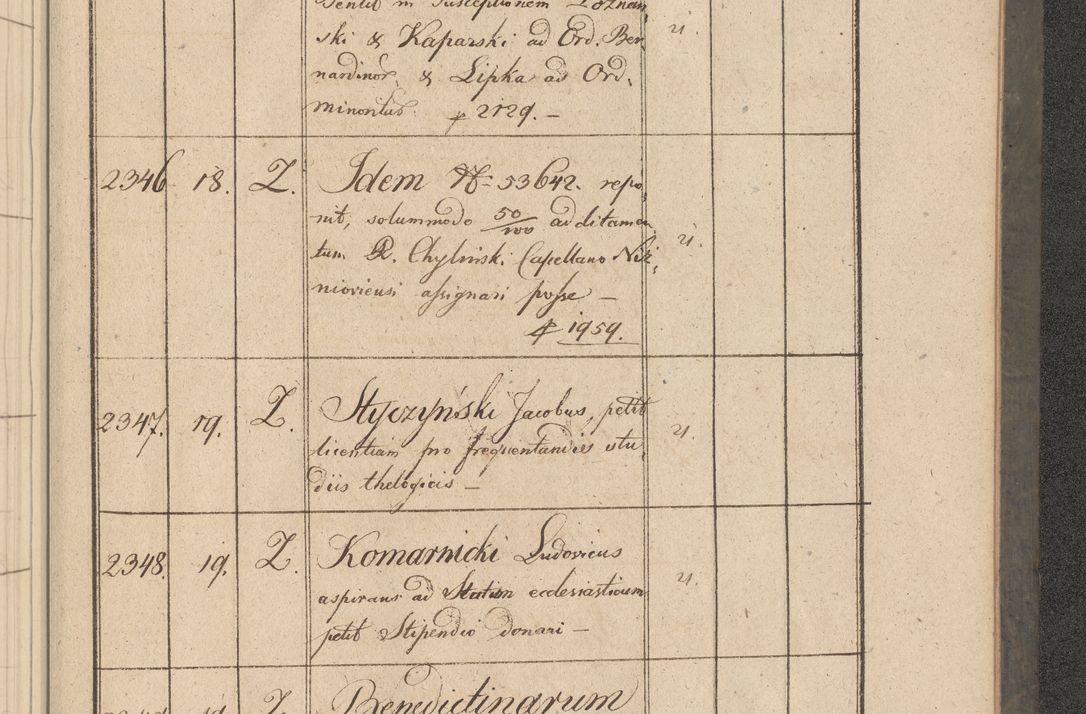 sentit in susceptionem Poznan,
ski & Kaparski ad Ord. Ber,
nardinor. & Lipka ad Ord.
minoritar. 2129. —
2346 18. Z. Idem N 53642. repo,
nit, solummodo 50/100 additamen,
tum R. Chylinski Capellano Niz,
nioviensi assignari posse —
1959.
2347. 19. Z. Styczyński Jacobus, petit
licentiam pro frequentandis stu,
diis thelogicis —
2348. 19. Z. Komarnicki Ludovicus
aspirans ad Statum ecclesiasticum
petit Stipendio donari —
Z. Benedictinarum